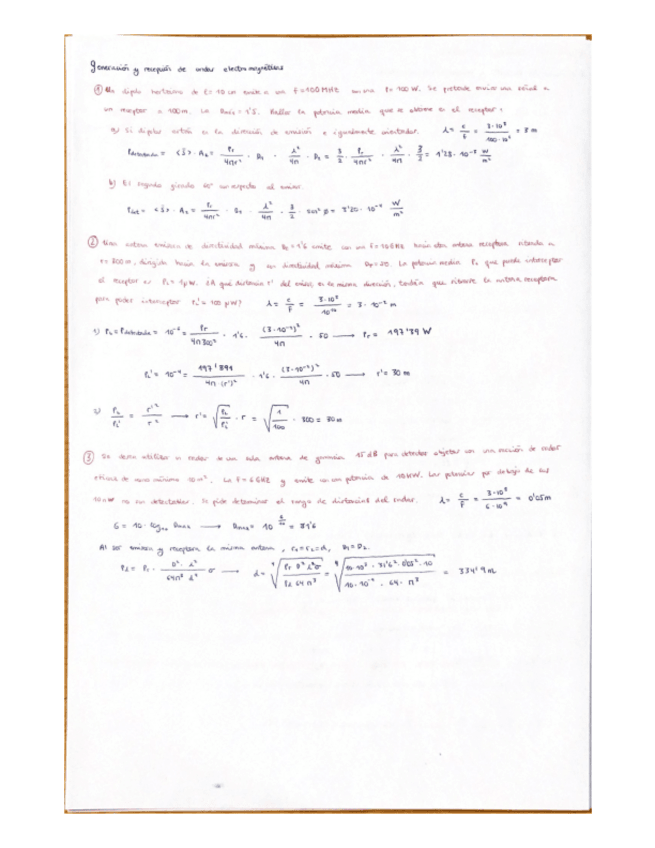 Generación y recepción de ondas electromagnéticas
① Un dipolo hertziano de l = 10 cm emite a una f = 100 MHz con una P = 100 W. Se pretende enviar una señal a
un receptor a 100 m. La Dmáx = 1'5. Hallar la potencia media que se obtiene en el receptor:
a) Si dipolos están en la dirección de emisión e igualmente orientados. λ = c/f = 3·10⁸/100·10⁶ = 3 m
= <S>·A₂ = Pr/4πr² · D₁ · λ²/4π · D₂ = 3/2 · Pr/4πr² · λ²/4π · 3/2 = 1'28·10⁻³ W/m²
b) El segundo girado 60° con respecto al emisor.
= <S>·A₂ = Pr/4πr² · D₁ · λ²/4π · 3/2 · = 3'20·10⁻⁴ W/m²
② Una antena emisora de directividad máxima = 1'6 emite con una f = 10 GHz hacia otra antena receptora situada a
r = 300 m, dirigida hacia la emisora y con directividad máxima La potencia media P₂ que puede interceptar
el receptor es P₂ = 1 μW. ¿A qué distancia r' del emisor, en la misma dirección, tendría que situarse la antena receptora
para poder interceptar P₂' = 100 μW? λ = c/f = 3·10⁸/10¹⁰ = 3·10⁻² m
1) P₂ = = 10⁻⁶ = Pr/4π300² · 1'6 · (3·10⁻²)²/4π · 50 ⟶ Pr = 197'39 W
P₂' = 10⁻⁴ = 4π·(r')² · 1'6 · (3·10⁻²)²/4π · 50 ⟶ r' = 30 m
2) P₂/P₂' = r'²/r² ⟶ r' = √(P₂/P₂') · r = √(1/100) · 300 = 30 m
③ Se desea utilizar un radar de una sola antena de ganancia 15 dB para detectar objetos con una sección de radar
eficaz de como mínimo 10 m². La f = 6 GHz y emite con una potencia de 10 kW. Las potencias por debajo de los
10 nW no son detectables. Se pide determinar el rango de distancias del radar. λ = c/f = 3·10⁸/6·10⁹ = 0'05 m
G = 10·log₁₀ Dmáx ⟶ Dmáx = = 31'6
Al ser emisora y receptora la misma antena, r₁ = r₂ = d, D₁ = D₂.
P₂ = Pr · D²·λ²/64π³ d⁴ σ ⟶ d = ⁴√(Pr D² λ² σ/P₂ 64 π³) = ⁴√(10·10³ · 31'6² · 0'05² · 10/10·10⁻⁹ · 64 · π³) = 334'9 m